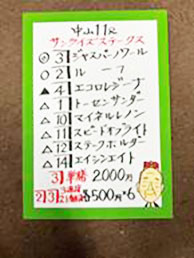 中山11R
サンライズステークス
◎ 3 ジャスパーノワール
○ 2 ルーフ
▲ 4 エコロレジーナ
△ 1 トーセンサンダー
△ 10 マイネルレノン
△ 11 スピードオブライト
△ 12 ステークホルダー
△ 14 エイシンエイト
3 単勝 2,000円
2 3 各500円×6